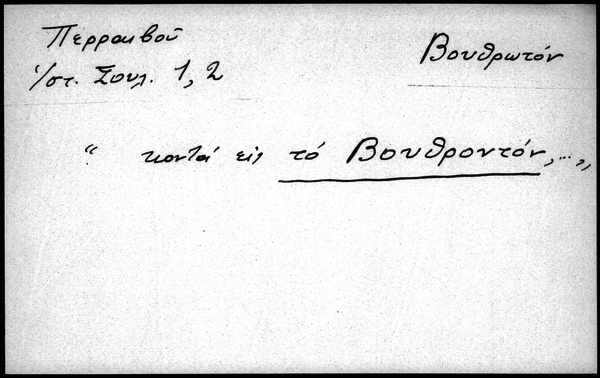 Περραιβοῦ
Ἱστ. Σουλ. 1,2
Βουθρωτόν
“ κοντά εἰς τό Βουθροντόν,...„